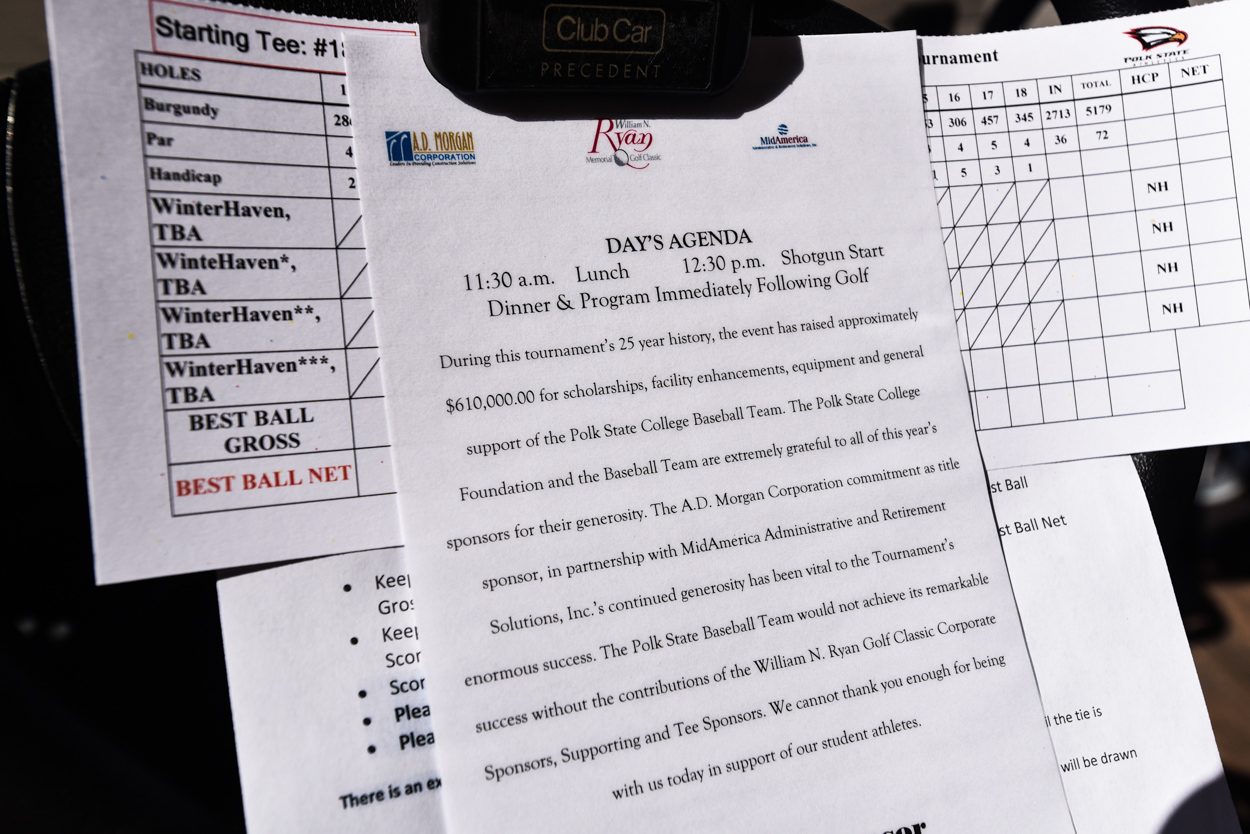 Club Car
PRECEDENT
Starting Tee: #1
HOLES 1
Burgundy 28
Par 4
Handicap 2
WinterHaven,
TBA
WinteHaven*,
TBA
WinterHaven**,
TBA
WinterHaven***,
TBA
BEST BALL
GROSS
BEST BALL NET
A.D. MORGAN
CORPORATION
Leaders In Providing Construction Solutions
William N.
Ryan
Memorial Golf Classic
MidAmerica
Administrative & Retirement Solutions, Inc.
DAY'S AGENDA
11:30 a.m. Lunch 12:30 p.m. Shotgun Start
Dinner & Program Immediately Following Golf
During this tournament's 25 year history, the event has raised approximately
$610,000.00 for scholarships, facility enhancements, equipment and general
support of the Polk State College Baseball Team. The Polk State College
Foundation and the Baseball Team are extremely grateful to all of this year's
sponsors for their generosity. The A.D. Morgan Corporation commitment as title
sponsor, in partnership with MidAmerica Administrative and Retirement
Solutions, Inc.'s continued generosity has been vital to the Tournament's
enormous success. The Polk State Baseball Team would not achieve its remarkable
success without the contributions of the William N. Ryan Golf Classic Corporate
Sponsors, Supporting and Tee Sponsors. We cannot thank you enough for being
with us today in support of our student athletes.
urnament
POLK STATE
16 17 18 IN TOTAL HCP NET
3 306 457 345 2713 5179
4 5 4 36 72
5 3 1
NH
NH
NH
NH
st Ball
st Ball Net
• Keep
Gros
• Keep
Scor
• Scor
• Plea
• Plea
There is an ex
il the tie is
will be drawn